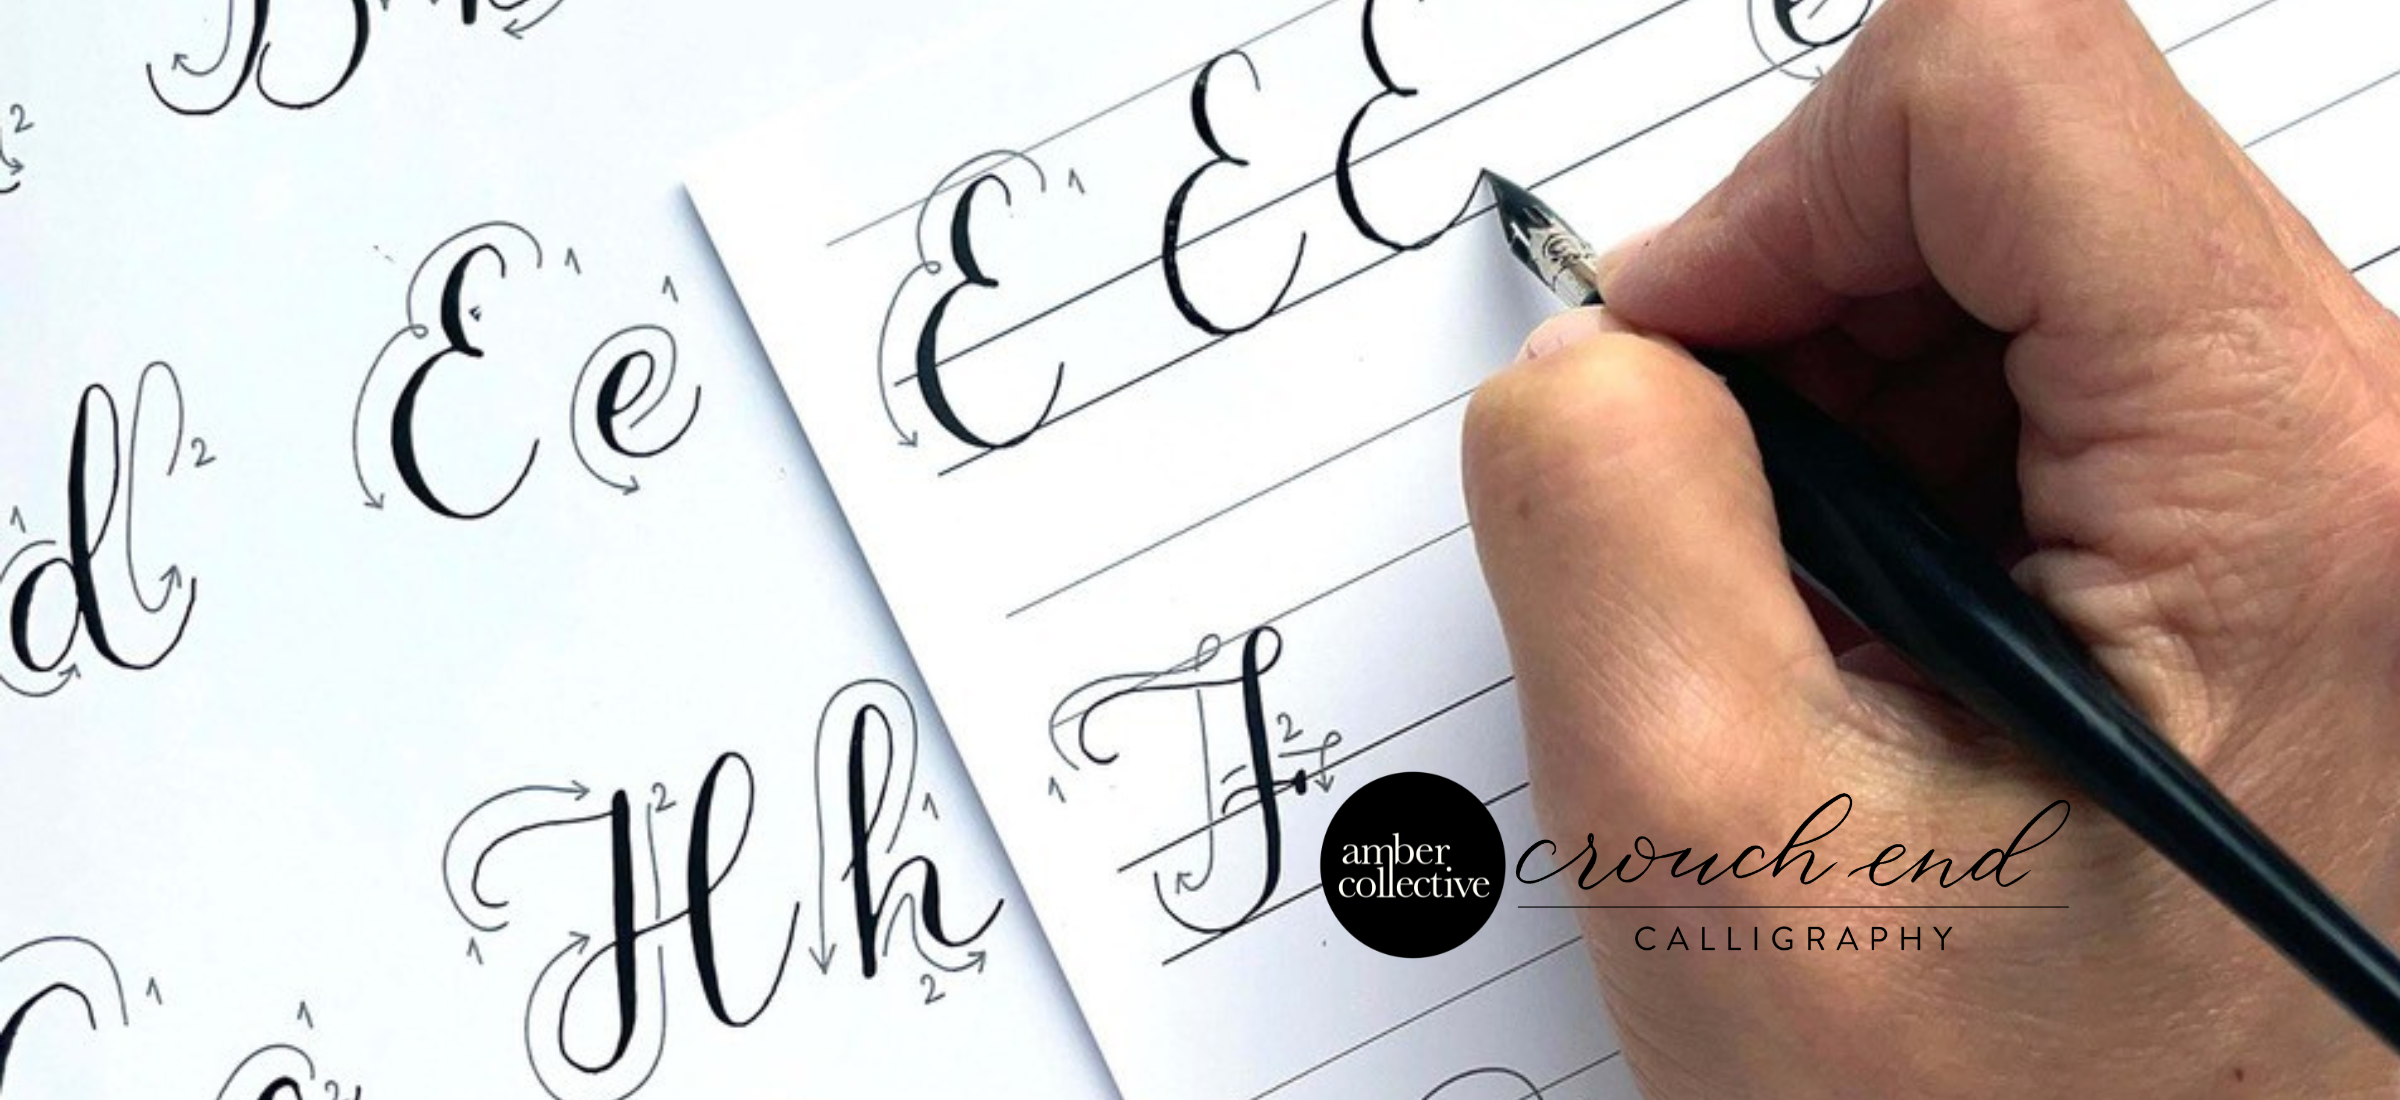 B h
2
E E E e
1
E e
1 1
d
1 2
F
1 2
H h
1 2 1 2
amber
collective
crouch end
CALLIGRAPHY
1 1 2